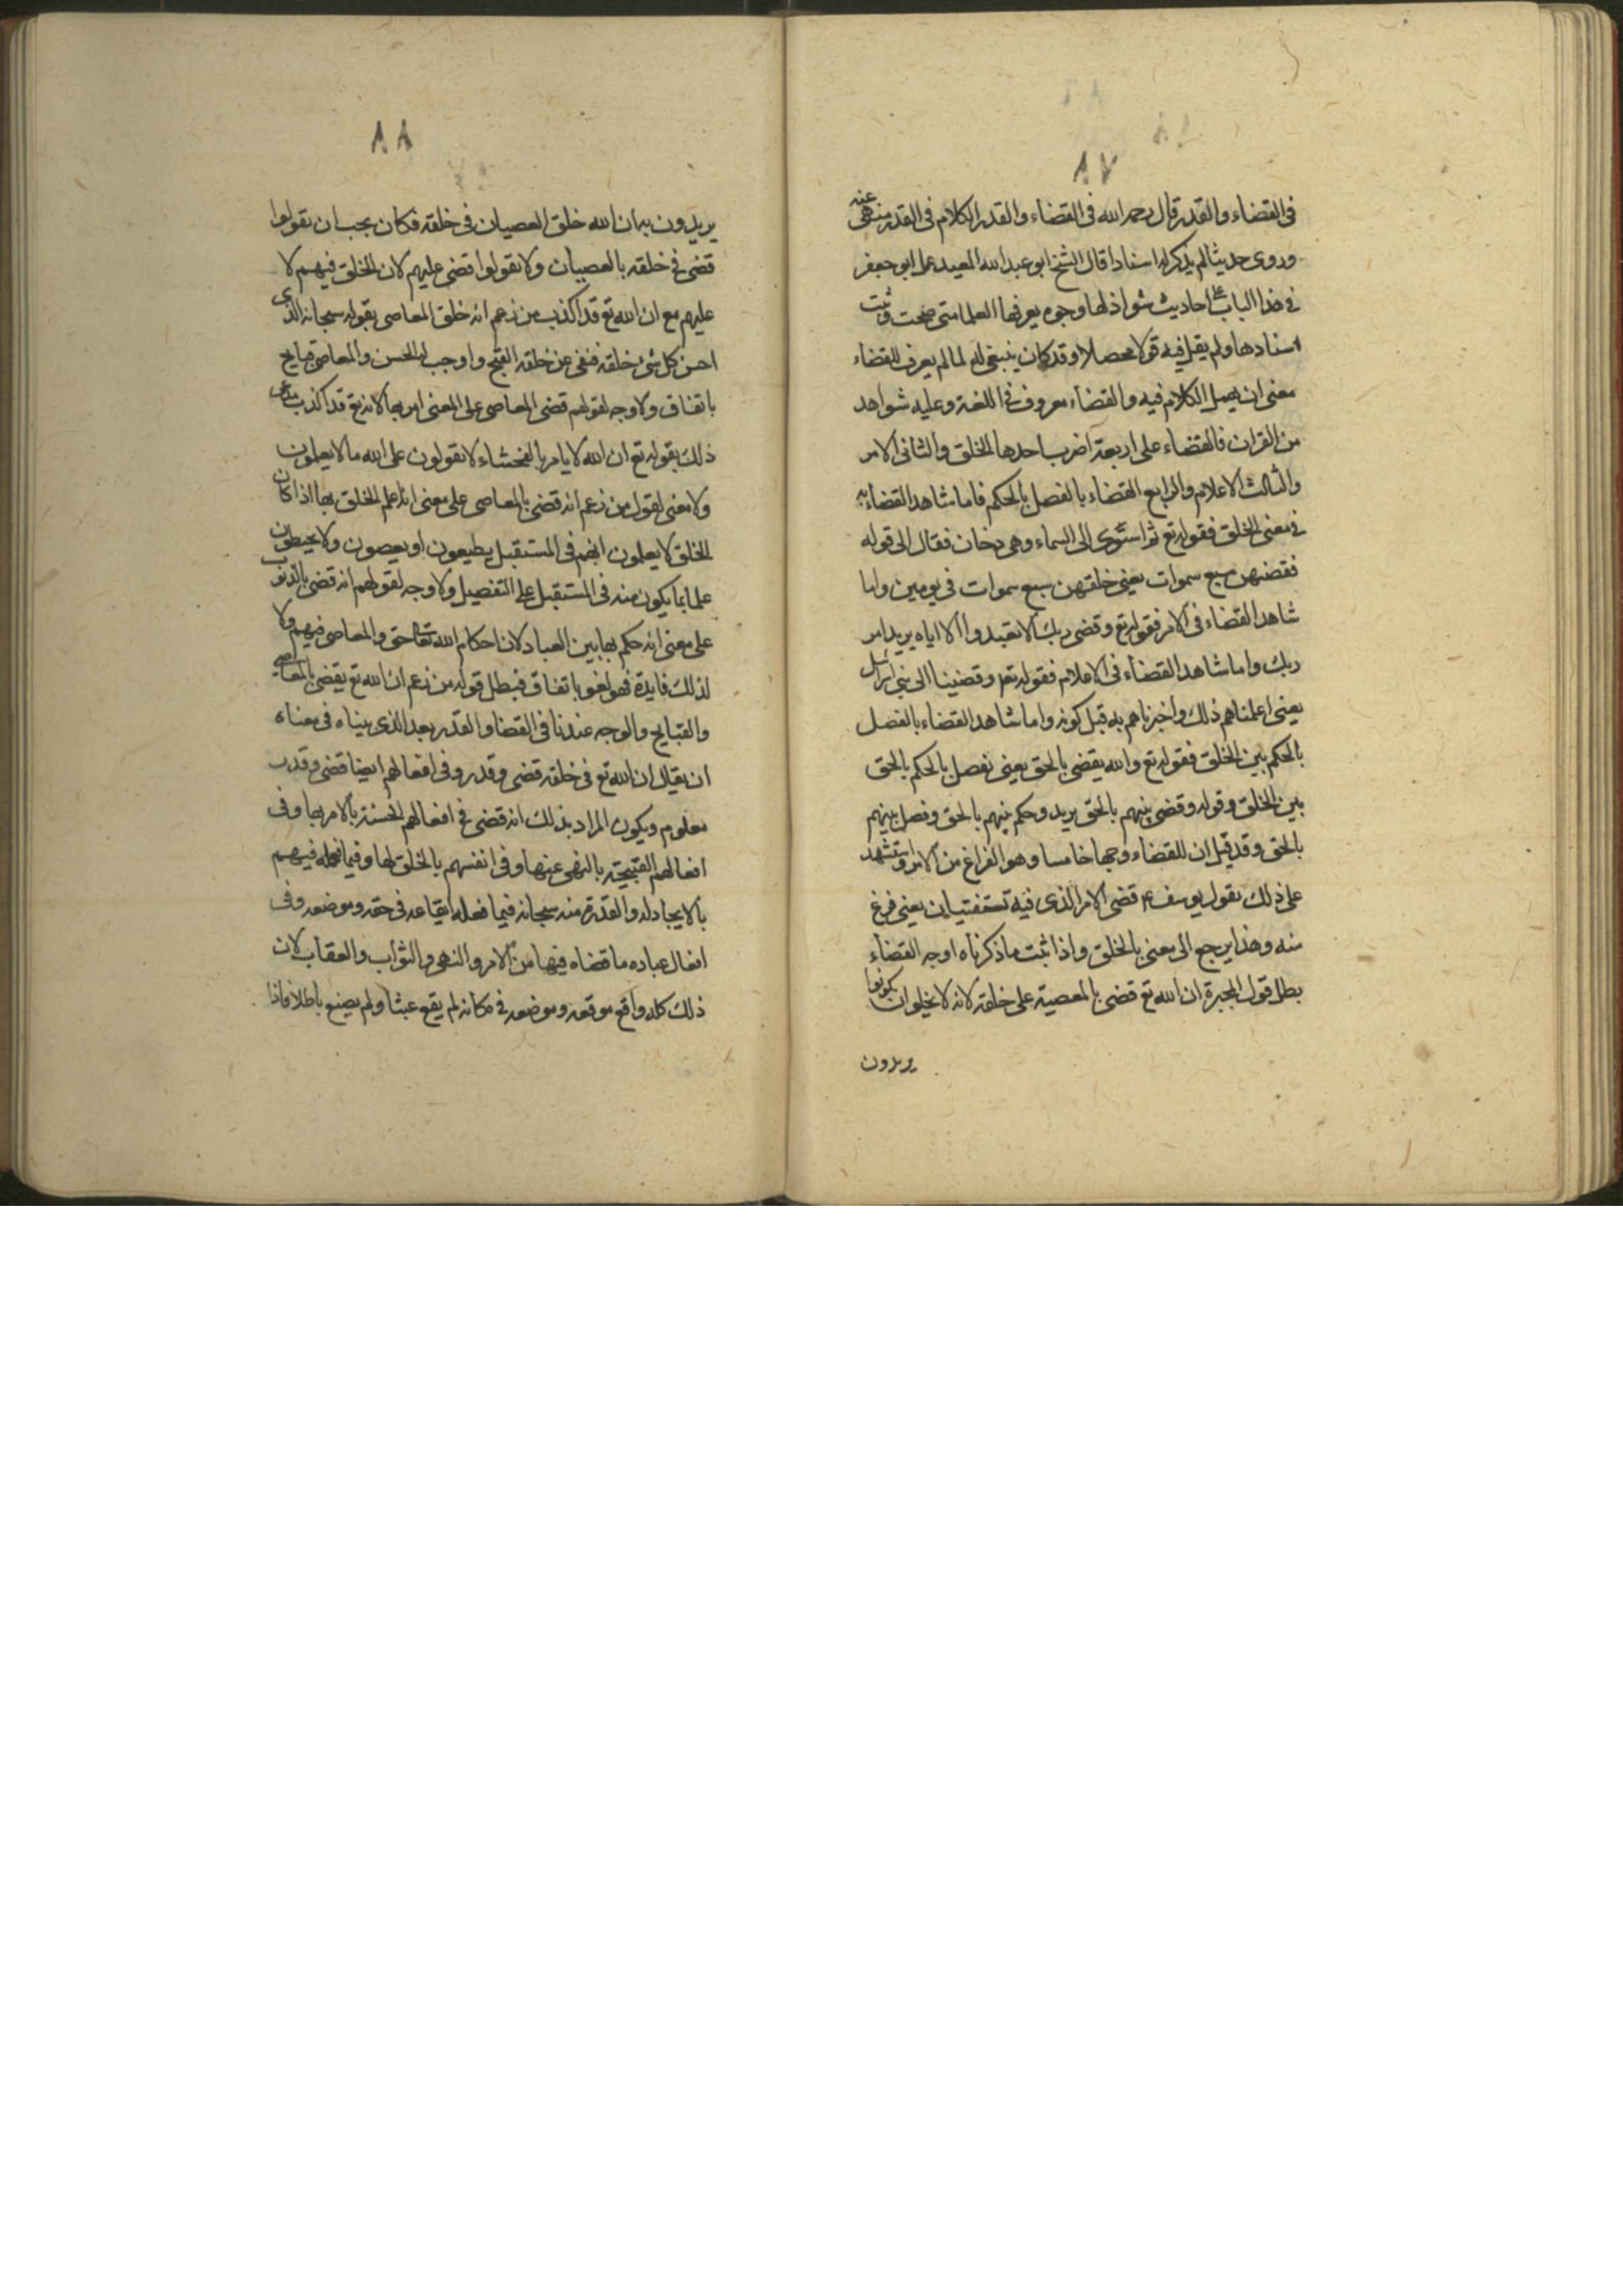 ٨٧
فى القضاء والقدر قال رحمه الله فى القضاء والقدر الكلام فى القدر منهى عنه
وروى حديثا لم يذكر له اسنادا قال الشيخ ابو عبد الله المفيد عمل ابو جعفر
فى هذا الباب على احاديث شواذ لها وجوه يعرفها العلما متى صحت وثبت
اسنادها ولم يقل فيه قولا محصلا وقد كان ينبغى له لما لم يعرف للقضاء
معنى ان يهمل الكلام فيه والقضاء معروف فى اللغة وعليه شواهد
من القران فالقضاء على اربعة اضرب احدها الخلق والثانى الامر
والثالث الاعلام والرابع القضاء بالفصل بالحكم فاما شاهد القضاء
فى معنى الخلق فقوله تع ثم استوى الى السماء وهى دخان فقال الى قوله
فقضيهن سبع سموات يعنى خلقهن سبع سموات فى يومين واما
شاهد القضاء فى الامر فقوله تع وقضى ربك الا تعبدوا الا اياه يريد امر
ربك واما شاهد القضاء فى الاعلام فقوله تع وقضينا الى بنى اسرائيل
يعنى اعلمناهم ذلك واخبرناهم به قبل كونه واما شاهد القضاء بالفصل
بالحكم بين الخلق فقوله تع والله يقضى بالحق يعنى نفصل بالحكم بالحق
بين الخلق وقوله وقضى بينهم بالحق يريد وحكم بينهم بالحق وفصل بينهم
بالحق وقد قيل ان للقضاء وجها خامسا وهو الفراغ من الامر واستشهد
على ذلك بقول يوسف ع قضى الامر الذى فيه تستفتيان يعنى فرغ
منه وهذا يرجع الى معنى الخلق واذا ثبت ما ذكرناه اوجه القضاء
بطل قول المجبرة ان الله تع قضى بالمعصية على خلقه لانه لا يخلو ان يكونوا
يريدون
٨٨
يريدون به ان الله خلق العصيان فى خلقه فكان يجب ان يقولوا
قضى فى خلقه بالعصيان ولا يقولوا قضى عليهم لان الخلق فيهم لا
عليهم مع ان الله تع قد اكذب من زعم انه خلق المعاصى بقوله سبحانه الذى
احسن كل شئ خلقه فنفى عن خلقه القبح واوجب له الحسن والمعاصى قبايح
باتفاق ولا وجه لقولهم قضى المعاصى على المعنى امر بها لانه تع قد اكذب مدعى
ذلك بقوله تع ان الله لا يامر بالفحشاء لا تقولون على الله ما لا يعلمون
ولا معنى لقول من زعم انه قضى بالمعاصى على معنى انه اعلم الخلق بها اذا كان
الخلق لا يعلمون انهم فى المستقبل يطيعون او يعصون ولا يحيطون
علما بما يكون منه فى المستقبل على التفصيل ولا وجه لقولهم انه قضى بالذنوب
على معنى انه حكم بها بين العباد لان احكام الله تعالى حق والمعاصى فيهم ولا
لذلك فايدة فهو لغو باتفاق فبطل قوله من زعم ان الله تع يقضى بالمعاصى
والقبايح والوجه عندنا فى القضا والقدر بعد الذى بيناه فى معناه
ان يقال ان الله تع فى خلقه قضى وقدر وفى افعالهم ايضا قضى وقدر
معلوم ويكون المراد بذلك انه قضى فى افعالهم الحسنة بالامر بها وفى
افعالهم القبيحة بالنهى عنها وفى انفسهم بالخلق لها وفيما فعله فيهم
بالايجاد له والقدرة منه سبحانه فيما فعله ايقاعه فى حقه وموضعه وفى
افعال عباده ما قضاه فيها من الامر والنهى والثواب والعقاب لان
ذلك كله واقع موقعه وموضعه فى مكانه لم يقع عبثا ولم يصنع باطلا فاذا